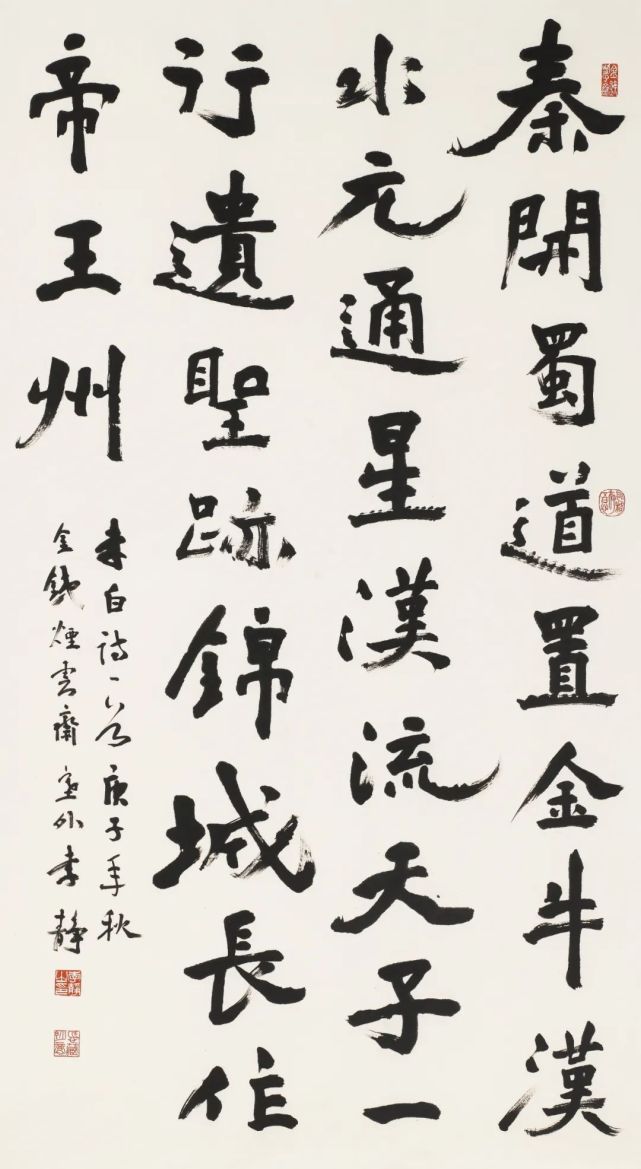 秦開蜀道置金牛漢
水元通星漢流天子一
行遺聖跡錦城長作
帝王州
李白詩一首庚子年秋
金錢煙雲齋塞外李靜